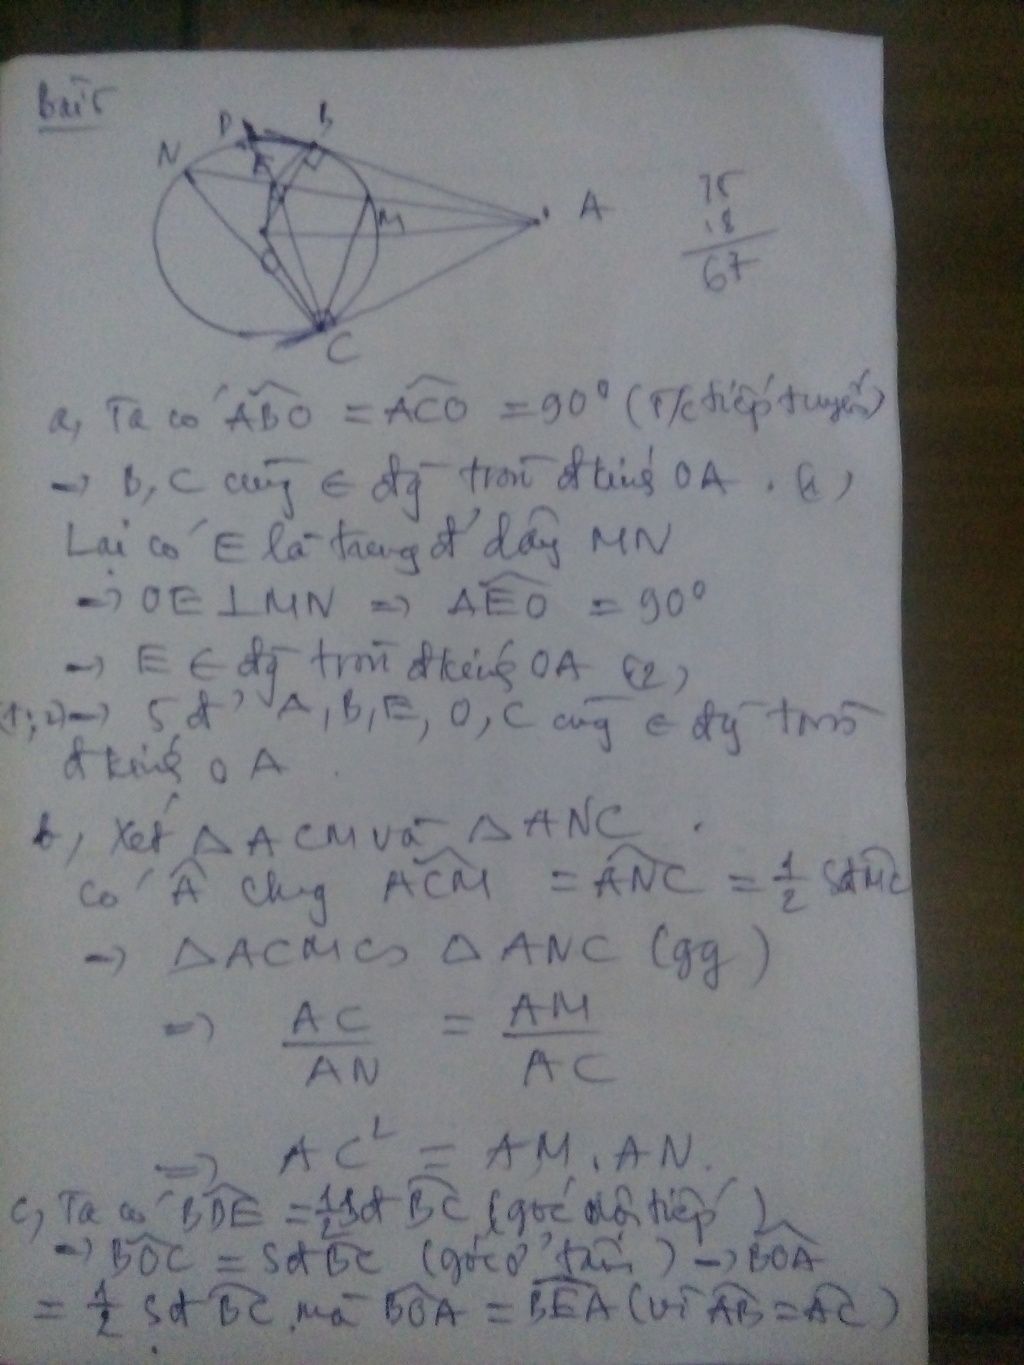 Bài 5
D B
N E
M A
O
C
75
18
67
a, Ta có ABO = ACO = 90° (T/c tiếp tuyến)
→ B, C cùng ∈ đg tròn đkính OA. (1)
Lại có E là trung đ' dây MN
→ OE ⊥ MN → AEO = 90°
→ E ∈ đg tròn đkính OA (2)
(1;2) → 5 đ' A, B, E, O, C cùng ∈ đg tròn
đkính OA.
b, Xét △ACM và △ANC.
có A chung ACM = ANC = 1/2 SđMC
→ △ACM ∽ △ANC (gg)
→ AC/AN = AM/AC
⇒ AC² = AM.AN.
c, Ta có BDE = 1/2 Sđ BC (góc nội tiếp)
→ BOC = Sđ BC (góc ở tâm) → BOA
= 1/2 Sđ BC. mà BOA = BEA (vì AB = AC)